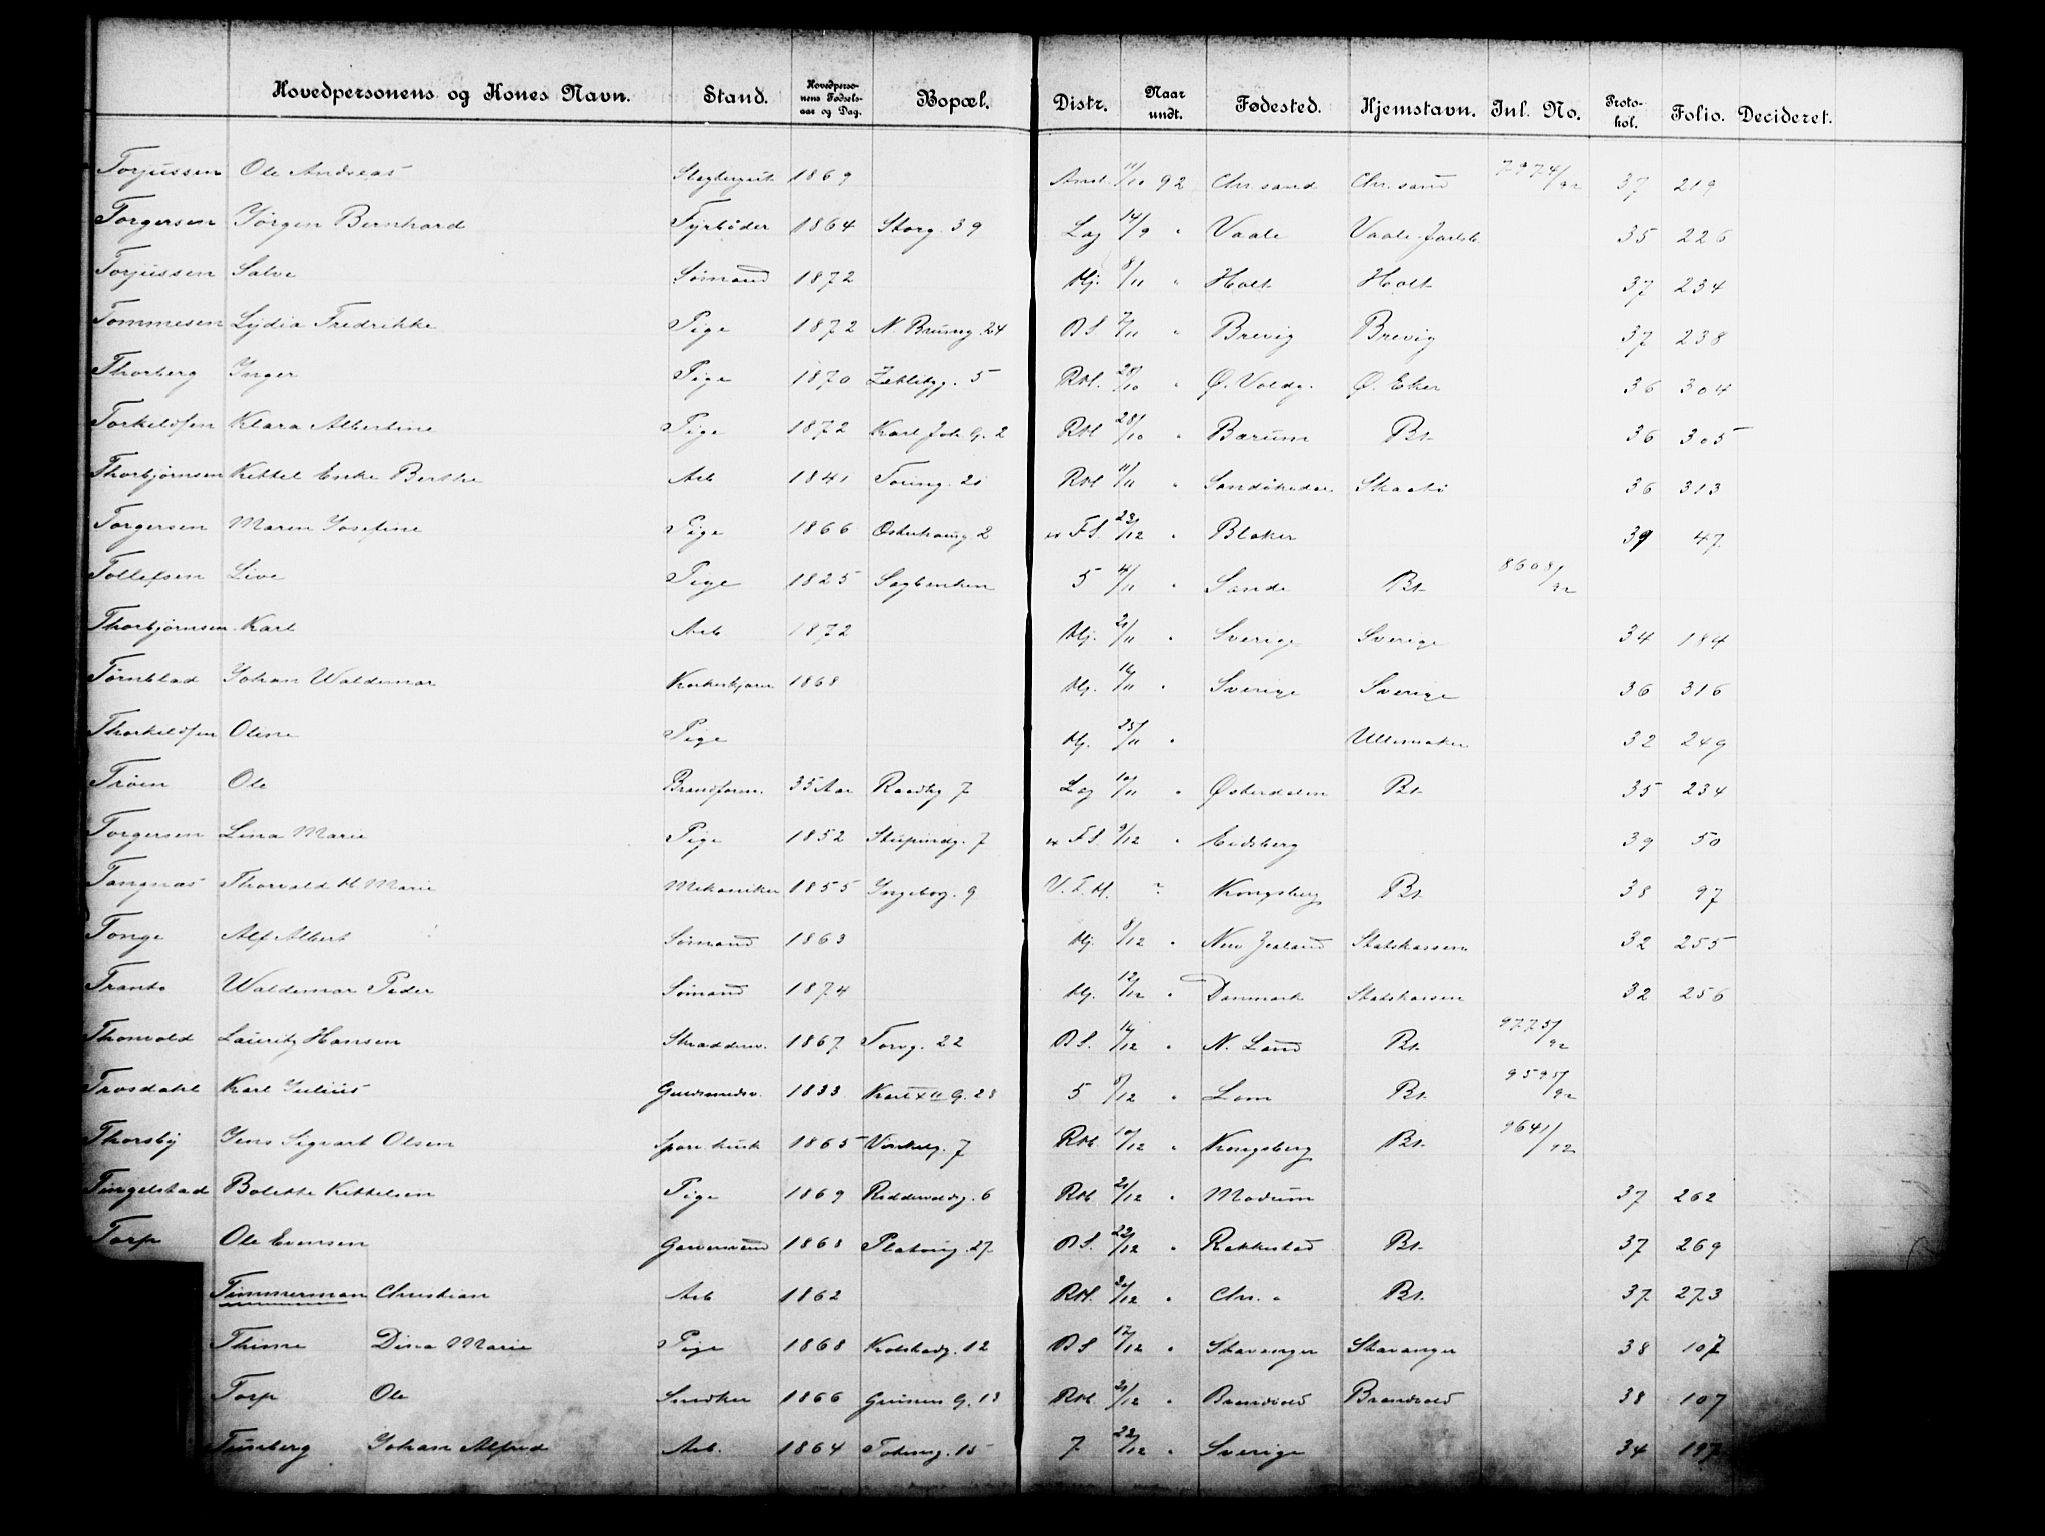 Hovedpersonens og Kones Navn. Stand. Hovedperso- nens Fødsels- aar og Dag. Bopæl. Distr. Naar undt. Fødested. Hjemstavn. Inl. No. Proto- kol. Folio. Decideret.
Torjussen Ole Andreas 1869 11/10 92 Chr.sand Chr.sand 7974/92 37 219
Torgersen Jørgen Bernhard Fyrbøder 1864 Storg. 39 Lag 14/9 " Vaale Vaale 35 226
Torjussen Salve Sømand 1872 Hj. 8/11 " Holt Holt 37 234
Tommesen Lydia Fredrikke Pige 1872 N. Brung. 24 B S 7/11 " Brevig Brevig 37 238
Thorberg Inger Pige 1870 5 RM. 28/10 " Ø. Eker 36 304
Torkeldsen Klara Albertine Pige 1872 Karl Joh. G. 2 RM 28/10 " Bærum Bt. 36 305
Thorbjørnsen Kittel Enke Berthe Arb 1841 RM 11/11 " Skaatø 36 313
Torgersen Maren Josefine Pige 1866 Østerhausg. 2 F S. 23/12 " Blaker 39 47
Tollefsen Live Pige 1825 Sagbanken 5 4/11 " Sande Bt. 8608/92
Thorbjørnsen Karl Arb 1872 Hj. 21/11 " Sverige Sverige 34 184
Törnblad Johan Waldemar 1868 Hj. 16/11 " Sverige Sverige 36 316
Thorkeldsen Oline Pige Hj. 25/11 " Ullensaker 32 249
Trøen Ole Brandform. 35 Aar 7 Lag 10/11 " Østerdalen Bt. 35 234
Torgersen Lina Marie Pige 1852 Stupindg. 7 F S. 9/12 " Eidsberg 39 50
Tangnæs Thorvald H Marie Mekaniker 1855 Ingeborg. 9 Kongsberg Bt. 38 97
Tonge Alf Albert Sømand 1863 Hj. 8/12 " New Zealand Statskassen 32 255
Trante Waldemar Peder Sømand 1874 Hj. 12/12 " Danmark Statskassen 32 256
Thorvald Lauritz Hansen Skræddersv. 1867 Torvg. 22 B S. 16/12 " N. Land Bt. 9775/92
Trosdahl Karl Julius Guldsmedsv. 1833 Karl XII G. 28 5 8/12 " Lom Bt. 9595/92
Thorsby Jens Sigvart Olsen Sporv. kusk 1865 Vinkelg. 7 RM. 10/12 " Kongsberg Bt. 9641/92
Tingelstad Bolette Kittelsen Pige 1869 Riddervoldsg. 6 RM. 21/12 " Modum 37 262
Torp Ole Evensen Garversvend 1868 Platoug. 27 B S. 22/12 " Rakkestad Bt. 37 269
Timmerman Christian Arb 1862 RM. 30/12 " Chr. a Bt. 37 273
Thime Dina Marie Pige 1868 Kolstadg. 12 B S 17/12 " Stavanger Stavanger 38 107
Torp Ole Snedker 1866 G. 13 RM. 21/12 " Brandvold Brandvold 38 107
Tunberg Johan Alfred Arb. 1864 Tøieng. 15 7 22/12 " Sverige 34 197